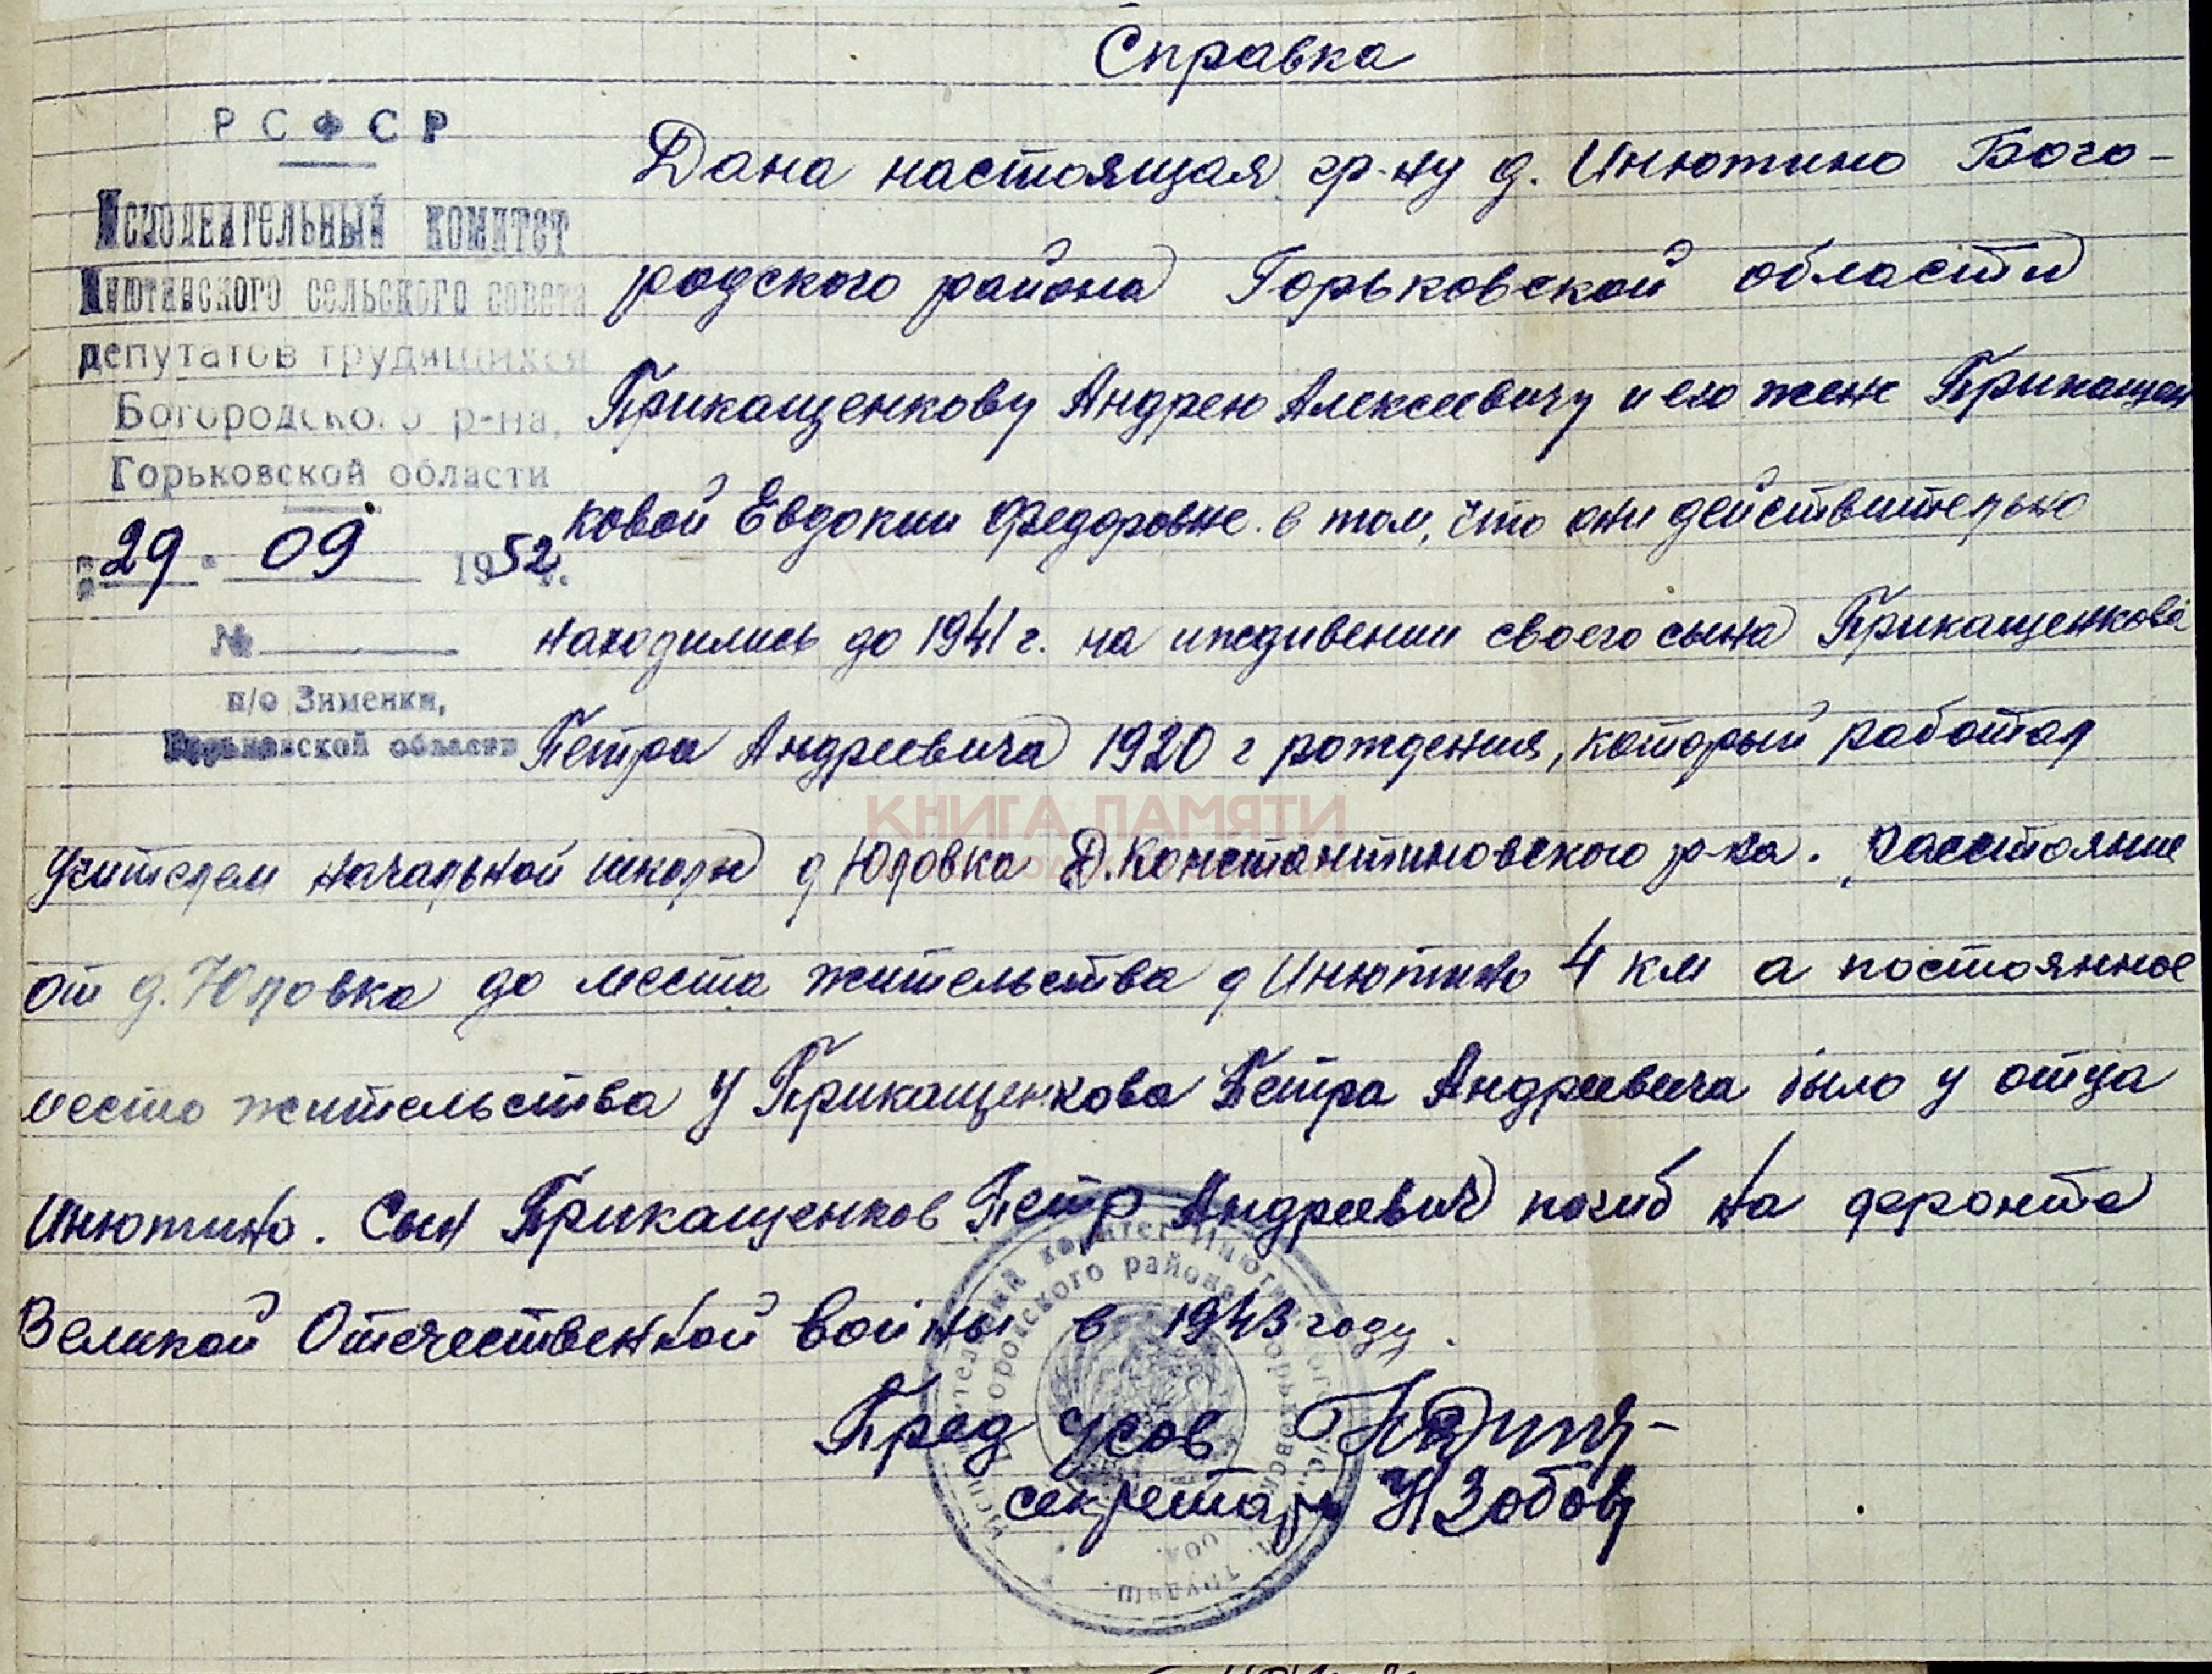 Справка
РСФСР
Исполнительный комитет
Инютинского сельского совета
депутатов трудящихся
Богородского р-на,
Горьковской области
"29" 09 1952 г.
№
п/о Зименки,
Горьковской области
Дана настоящая гр-ну д. Инютино Бого-
родского района Горьковской области
Прикащенкову Андрею Алексеевичу и его жене Прикащен
ковой Евдокии Федоровне в том, что они действительно
находились до 1941 г. на иждивении своего сына Прикащенкова
Петра Андреевича 1920 г рождения, который работал
учителем начальной школы д Юловка Д.Константиновского р-на. Расстояние
от д. Юловка до места жительства д Инютино 4 км а постоянное
место жительства у Прикащенкова Петра Андреевича было у отца
Инютино. Сын Прикащенков Петр Андреевич погиб на фронте
Великой Отечественной войны в 1943 году.
Пред Усов
секретарь
КНИГА ПАМЯТИ